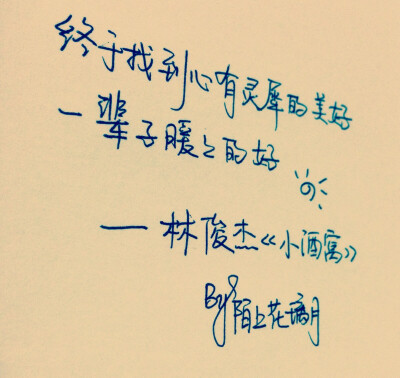 终于找到心有灵犀的美好
一辈子暖々的好
——林俊杰《小酒窝》
By 陌上花璃月